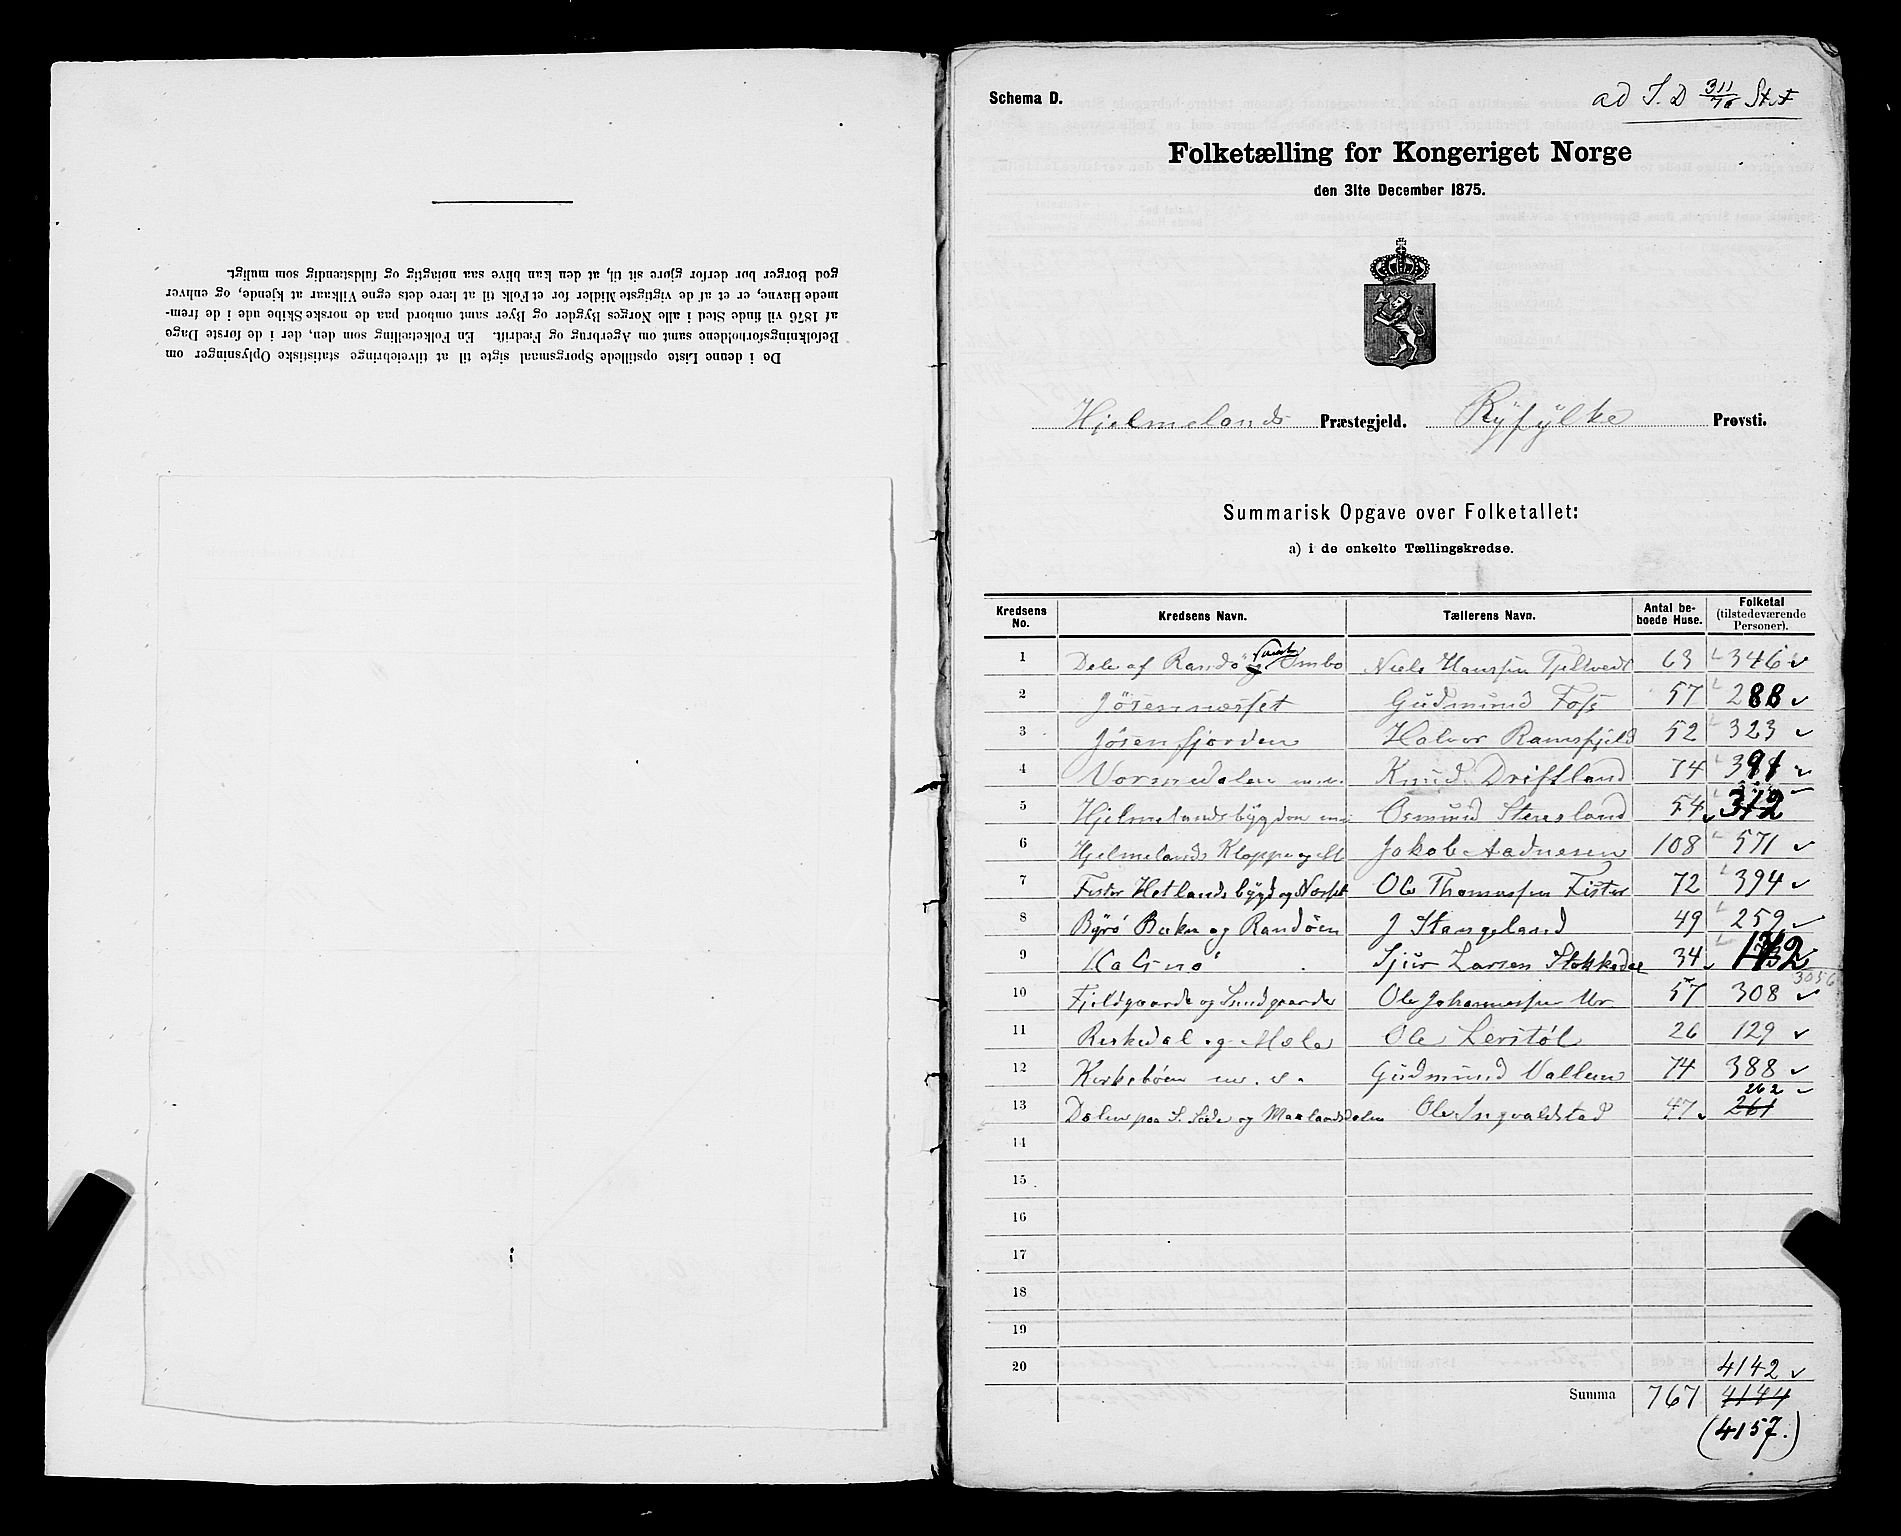 De i denne Liste opstillede Spørgsmaal sigte til at tilveiebringe statistiske Oplysninger om
Befolkningsforholdene samt om Agerbrug og Fædrift. En Folketælling som den, der i de første Dage
af 1876 vil finde Sted i alle Norges Bygder og Byer samt ombord paa de norske Skibe ude i de frem-
mede Havne, er et af de vigtigste Midler for et Folk til at lære dets egne Vilkaar at kjende, og enhver
god Borger bør derfor gjøre sit til, at den kan blive saa nøiagtig og fuldstændig som muligt.
Schema D.
ad I. D 311/76 Stat
Folketælling for Kongeriget Norge
den 31te December 1875.
Hjelmelands Præstegjeld. Ryfylke Provsti.
Summarisk Opgave over Folketallet:
a) i de enkelte Tællingskredse.
Kredsens No. Kredsens Navn. Tællerens Navn. Antal be-boede Huse. Folketal (tilstedeværende Personer).
1 Dele af Randø samt Ombo Niels Hanssen Tjeltvedt 63 346
2 Jøsennæsset Gudmund Foss 57 288
3 Jøsenfjorden Halvor Ramsfjeld 52 323
4 Vormedalen m.v. Knud Driftland 74 391
5 Hjelmelandsbygden Osmund Steensland 54 312
6 Hjelmelands Kloppe og Jakob Aadnesen 108 571
7 Fister Hetlandsbygd og Næsset Ole Thomassen Fister 72 394
8 Byrø Bukn og Randøen J Stangeland 49 259
9 Halsnø Sjur Larsen Stokkedal 34 172
3056
10 Fjeldgaarde og Sundgaarde Ole Johannessen Ur 57 308
11 Reskedal og Mæle Ole Lerstøl 26 129
12 Kirkebøen m.v. Gudmund Vallem 74 388
262
13 Dalen paa S. Side og Maalandsdalen Ole Ingvaldstad 47 261
14
15
16
17
18
19
20 4142
Summa 767 4144
(4157.)